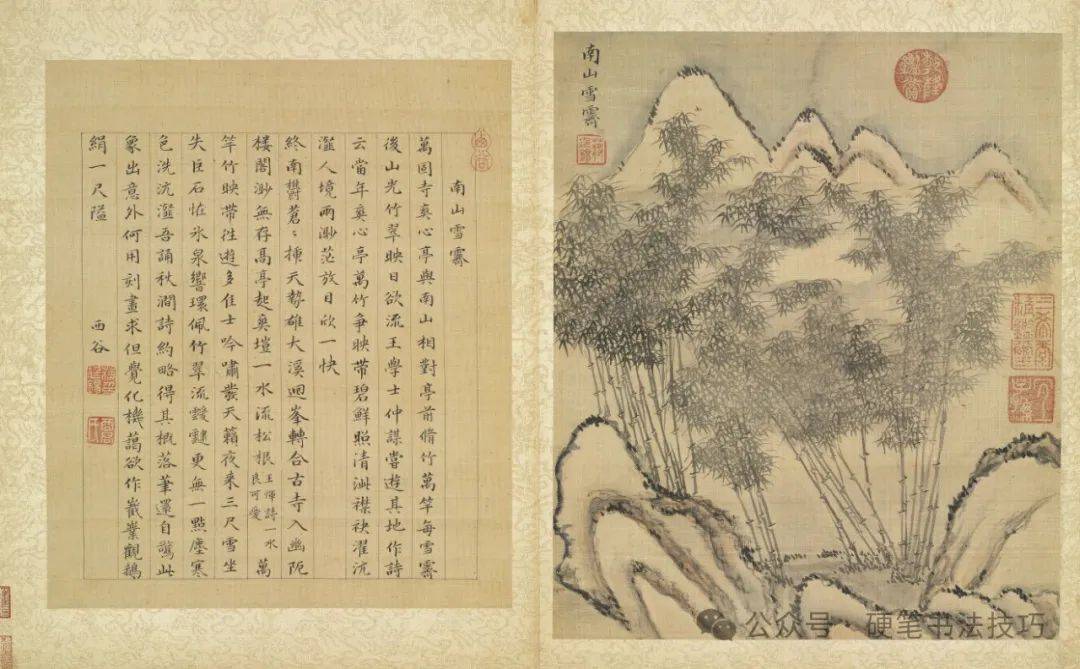 南山雪霽
萬固寺奐心亭與南山相對亭前脩竹萬竿每雪霽
後山光竹翠映日欲流王學士仲謀嘗遊其地作詩
云當年奐心亭萬竹爭映帶碧鮮照清泚襟袂濯沆
瀣人境兩渺茫放目欣一快
終南鬱蒼〻插天勢雄大溪迴峯轉合古寺入幽阨
樓閣渺無存高亭起奧塏一水流松根王惲詩一水良可愛萬
竿竹映帶往遊多佳士吟嘯發天籟夜來三尺雪坐
失巨石怪氷泉響環佩竹翠流靉靆更無一點塵寒
色洗沆瀣吾誦秋澗詩約略得其槪落筆還自驚此
象出意外何用刻畫求但覺化機藹欲作嶻嶪觀鵝
絹一尺隘
西谷
南山雪霽
公众号 硬笔书法技巧